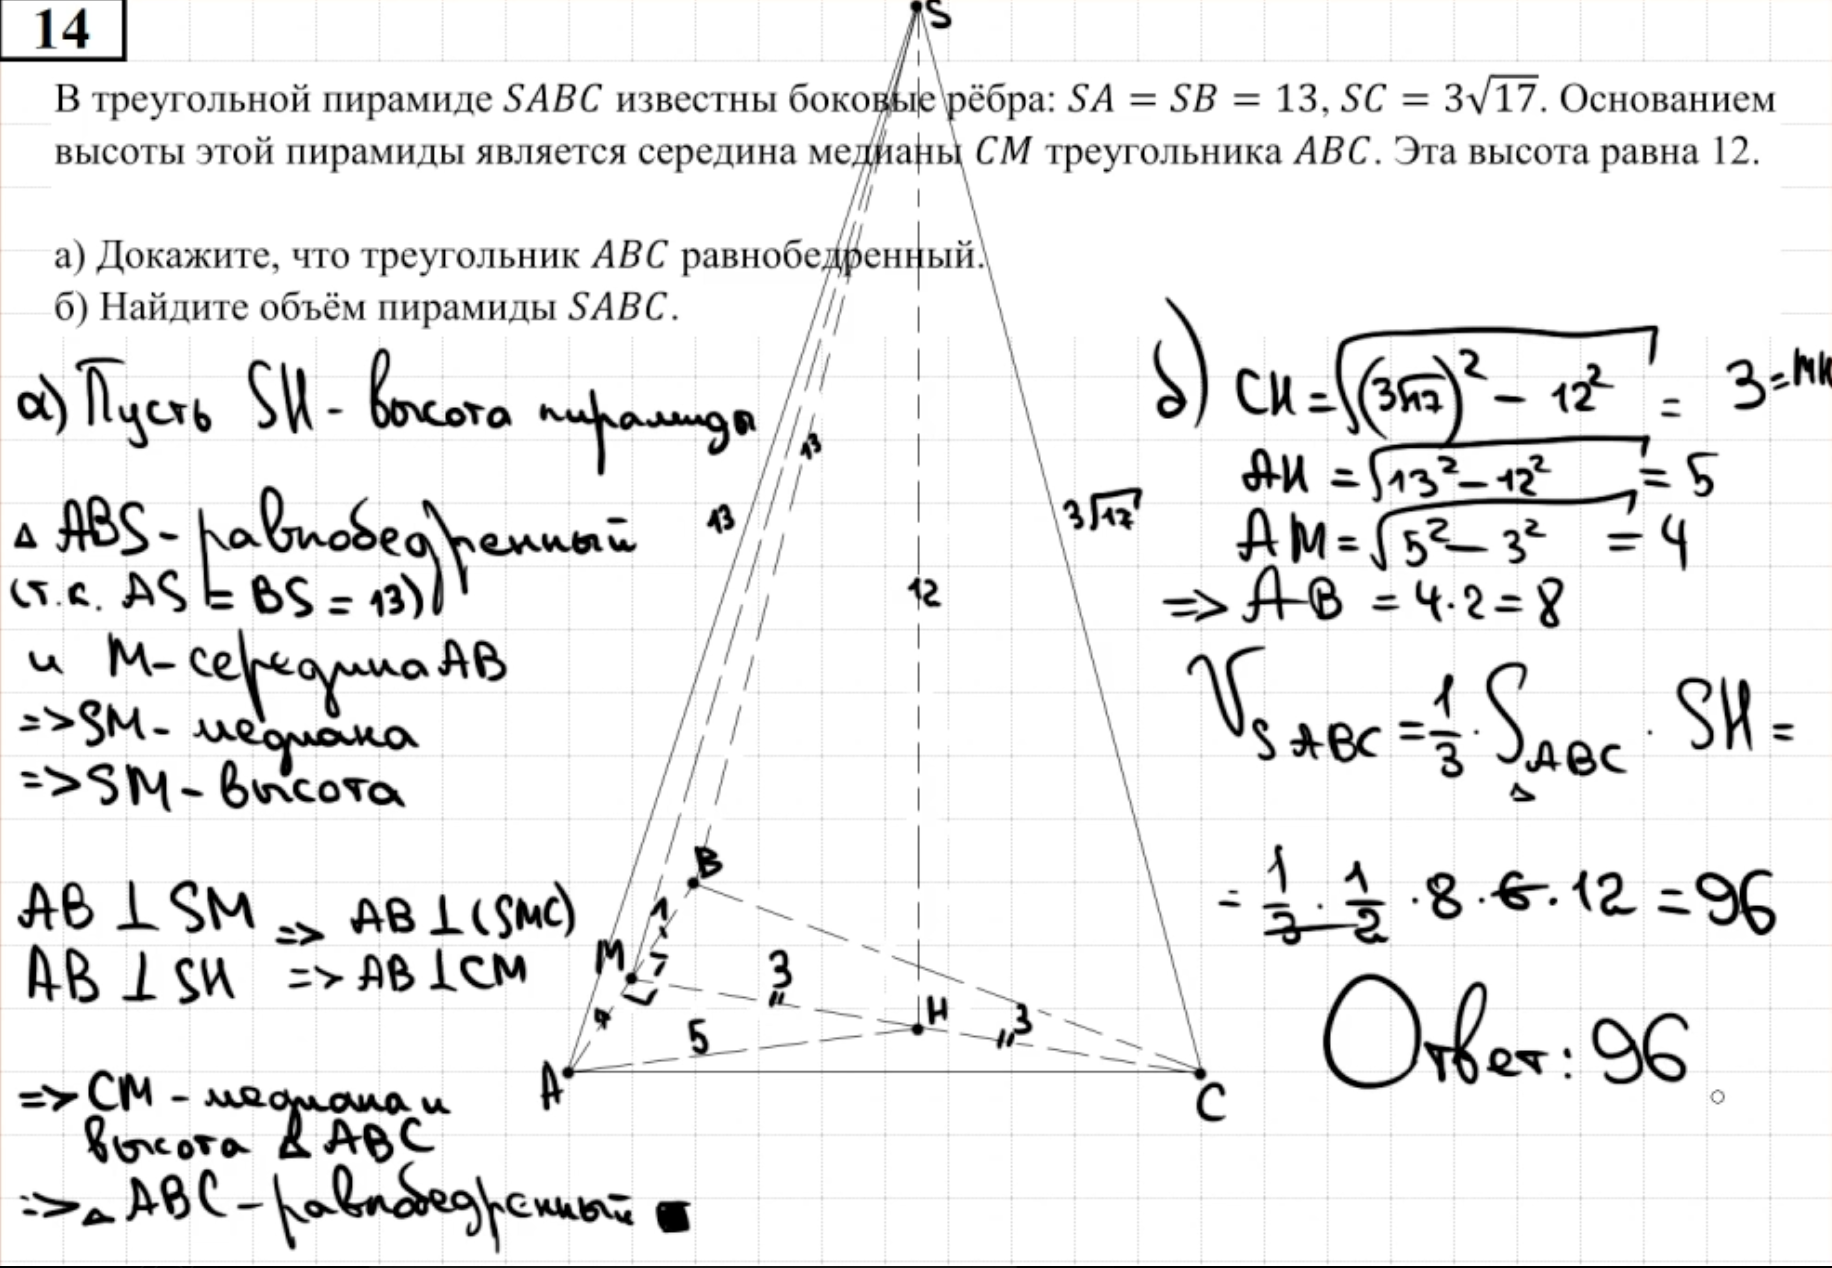 14
В треугольной пирамиде SABC известны боковые рёбра: SA = SB = 13, SC = 3√17. Основанием
высоты этой пирамиды является середина медианы CM треугольника ABC. Эта высота равна 12.
а) Докажите, что треугольник ABC равнобедренный.
б) Найдите объём пирамиды SABC.
а) Пусть SH - высота пирамиды
△ ABS - равнобедренный
(т.к. AS = BS = 13)
и M - середина AB
=> SM - медиана
=> SM - высота
AB ⊥ SM => AB ⊥ (SMC)
AB ⊥ SH => AB ⊥ CM
=> CM - медиана и
высота △ ABC
=> △ ABC - равнобедренный ■
S
13
13
12
3√17
B
M
3
H
3
5
A
C
б) CH = √((3√17)² - 12²) = 3 = MH
AH = √(13² - 12²) = 5
AM = √(5² - 3²) = 4
=> AB = 4·2 = 8
V SABC = 1/3 · S△ABC · SH =
= 1/3 · 1/2 · 8 · 6 · 12 = 96
Ответ: 96